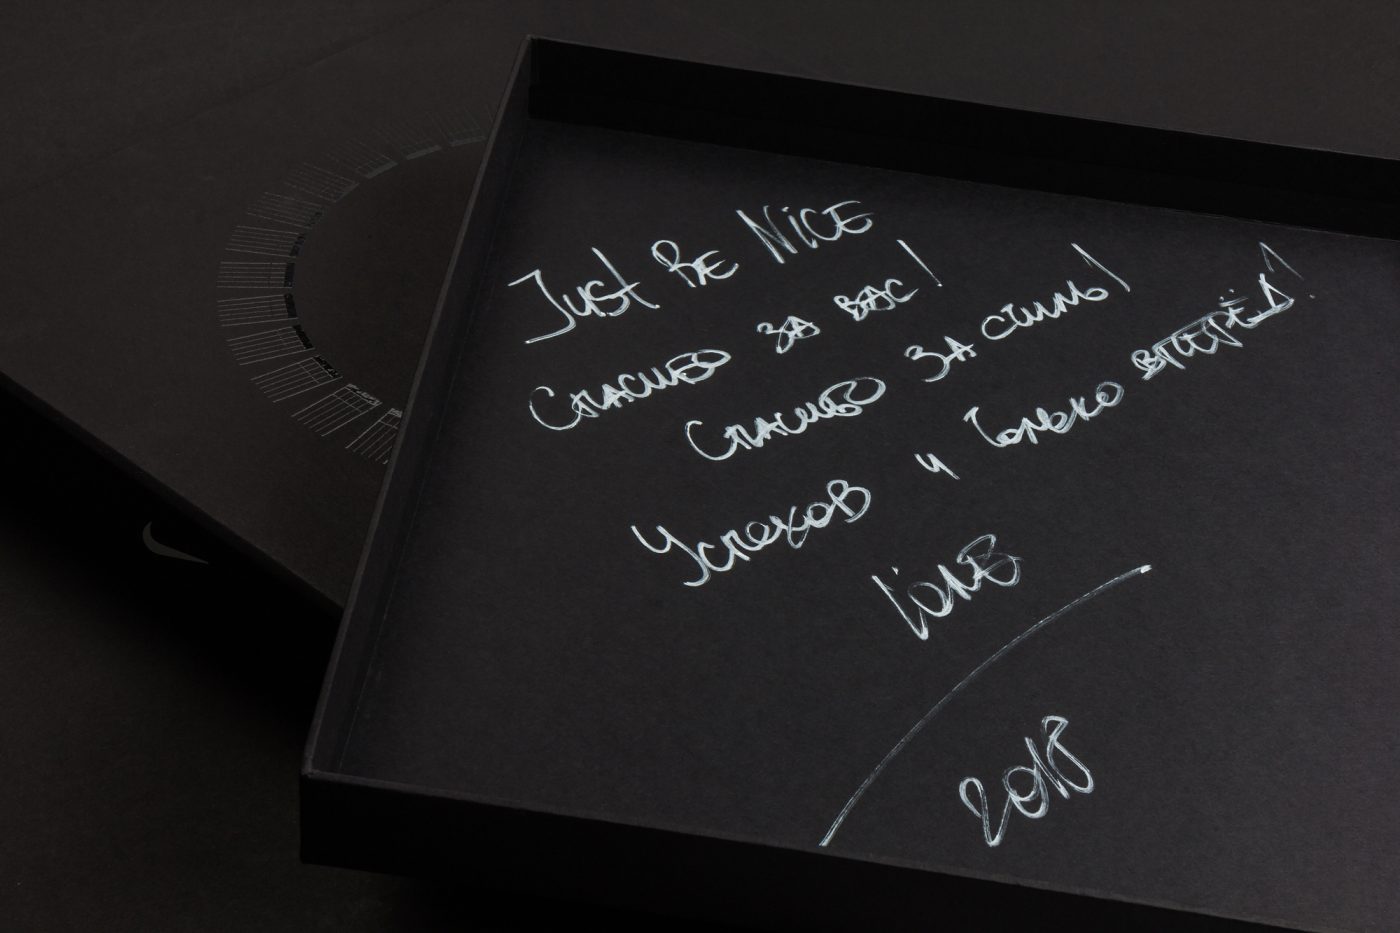 Just Be Nice
Спасибо за вас!
Спасибо за стиль!
Успехов и только вперёд!
2018